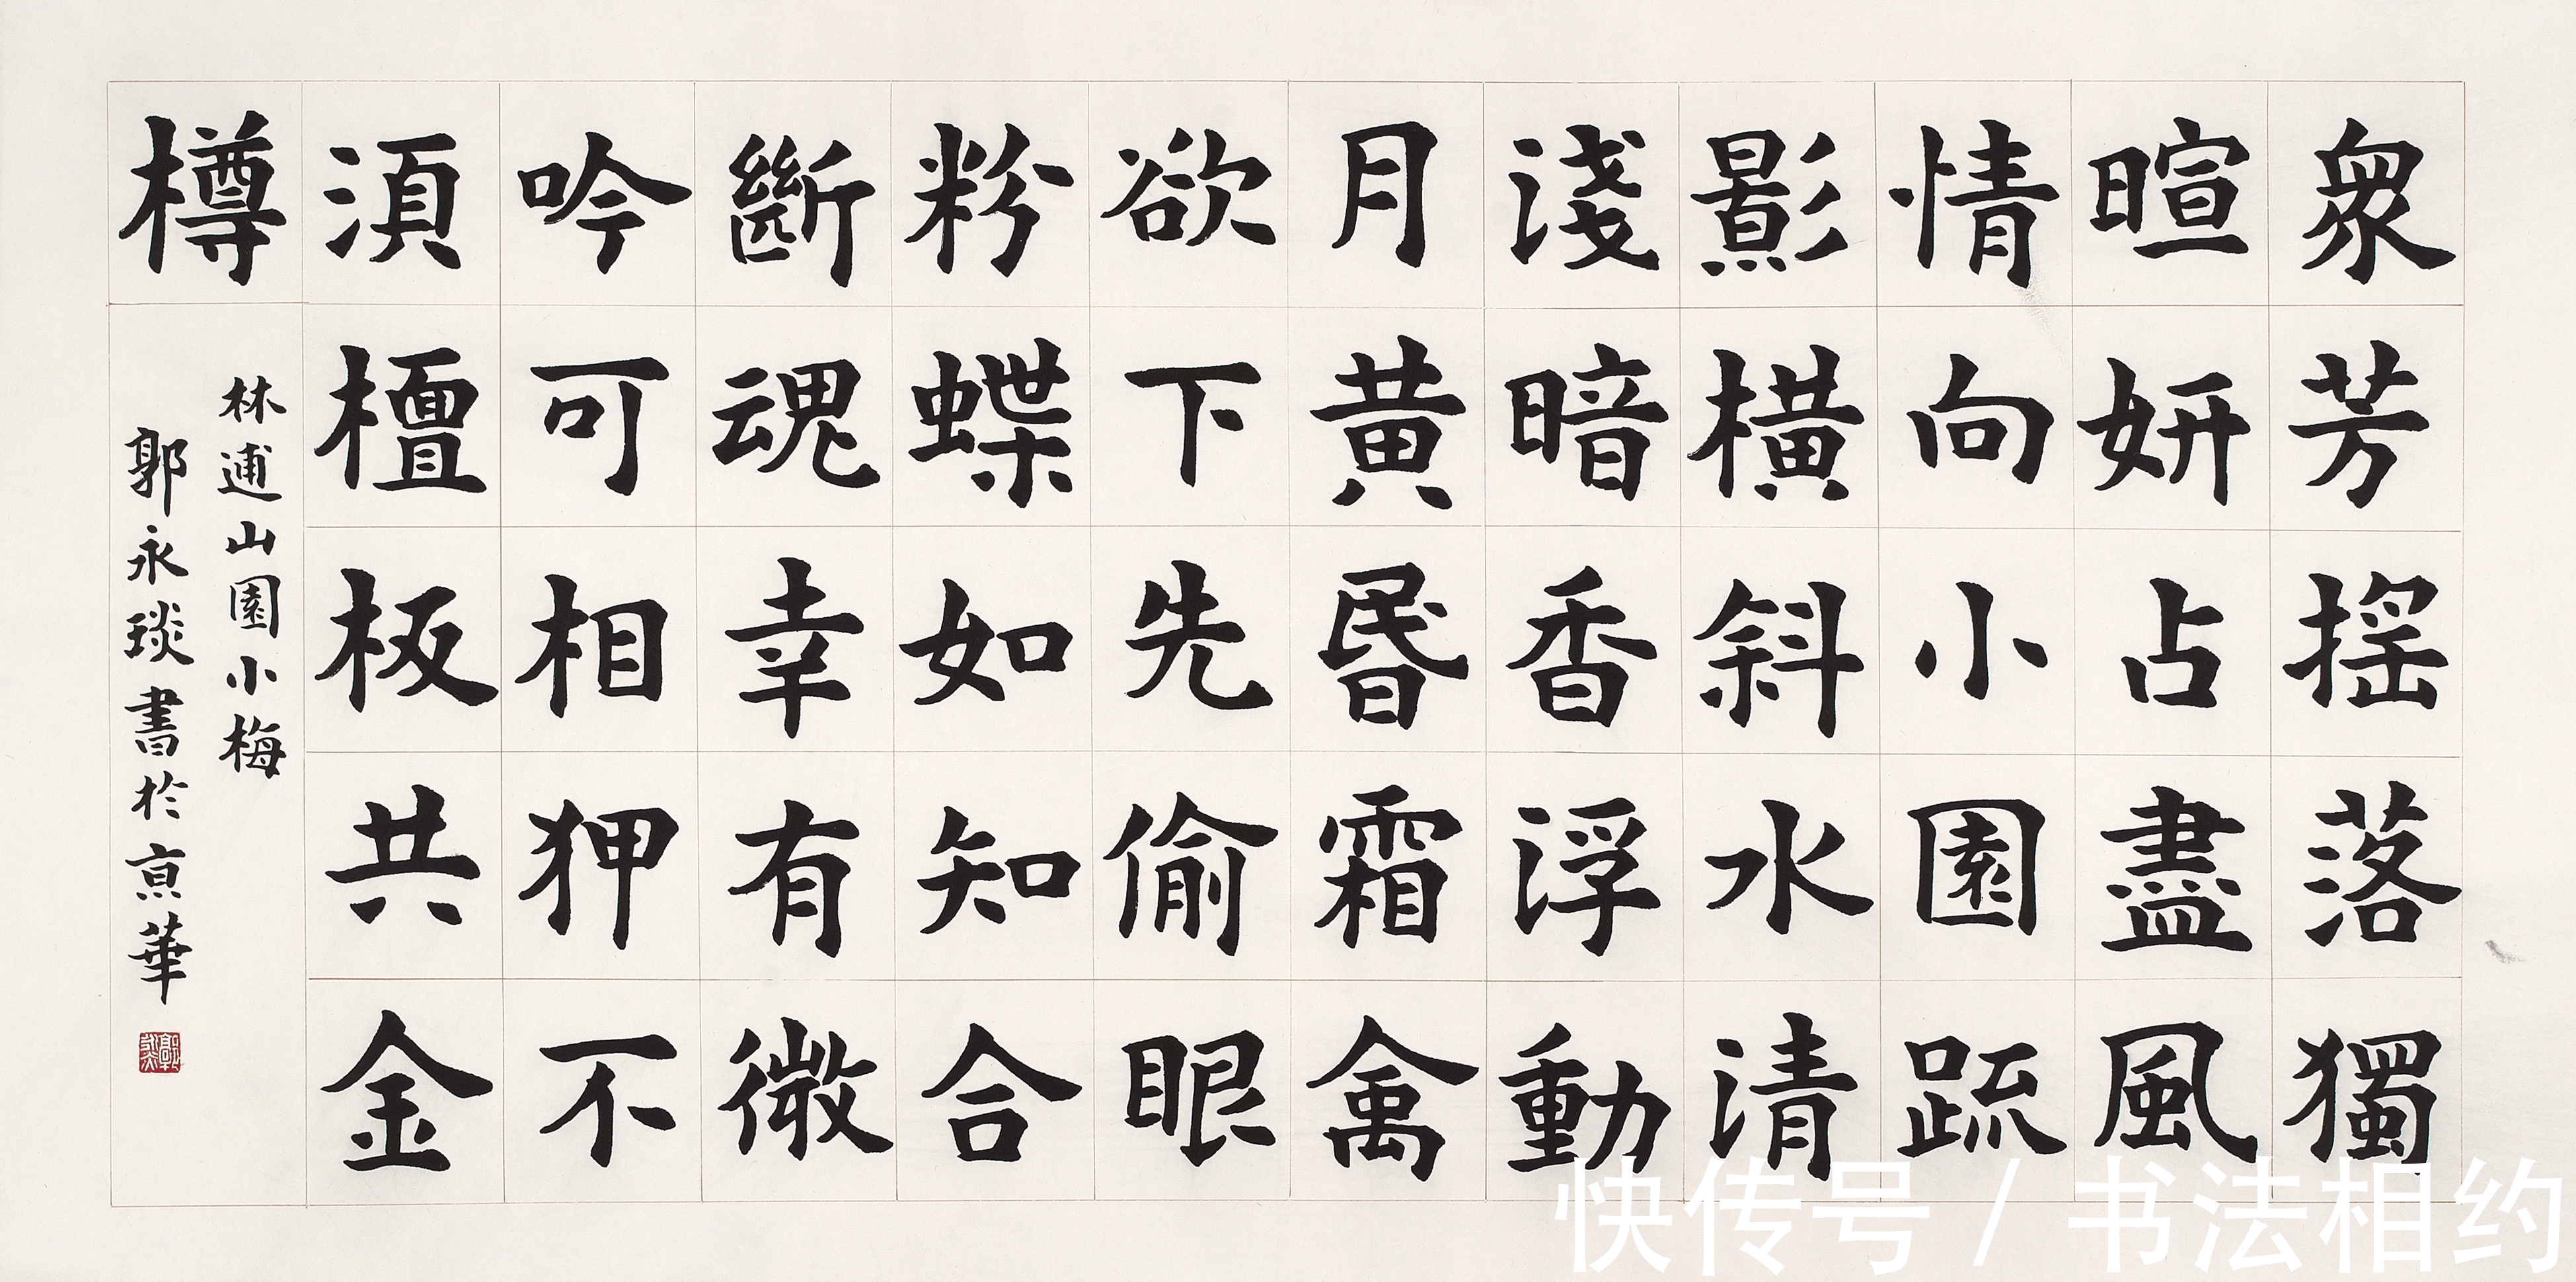 衆芳摇落獨
暄妍占盡風
情向小園疏
影橫斜水清
淺暗香浮動
月黃昬霜禽
欲下先偷眼
粉蝶如知合
斷魂幸有微
吟可相狎不
湏檀板共金
樽
林逋山園小梅
郭永琰書於亰華
快传号 / 书法相约